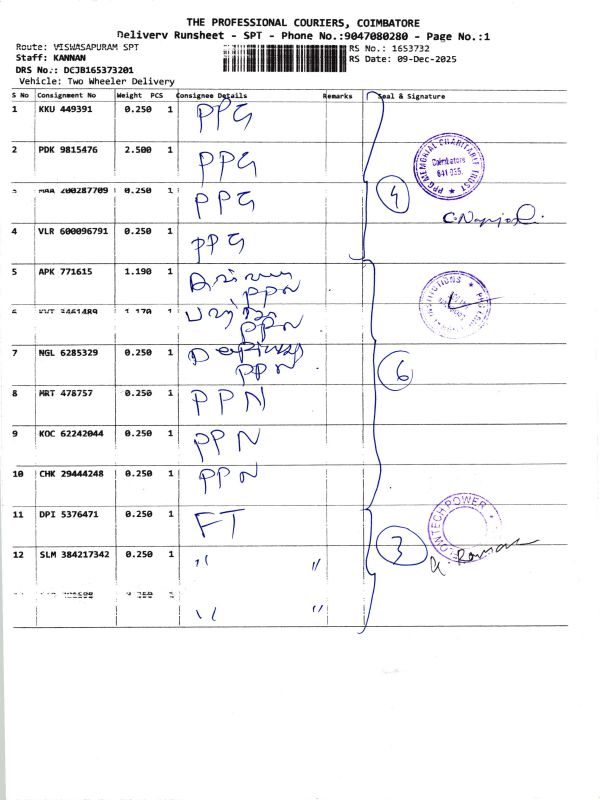 THE PROFESSIONAL COURIERS, COIMBATORE
Delivery Runsheet - SPT - Phone No.:9047080280 - Page No.:1
Route: VISWASAPURAM SPT
RS No.: 1653732
Staff: KANNAN
RS Date: 09-Dec-2025
DRS No.: DCJB165373201
Vehicle: Two Wheeler Delivery
S No Consignment No Weight PCS Consignee Details Remarks Seal & Signature
1 KKU 449391 0.250 1 PPG
2 PDK 9815476 2.500 1 PPG
PPG MEMORIAL CHARITABLE TRUST
Coimbatore
641 035.
4
MAA 200287709 0.250 1 PPG
4 VLR 600096791 0.250 1 PPG
5 APK 771615 1.190 1
PPN
3461489 1.170 1
PPN
7 NGL 6285329 0.250 1
PPN
6
8 MRT 478757 0.250 1 PPN
9 KOC 62242044 0.250 1 PPN
10 CHK 29444248 0.250 1 PPN
11 DPI 5376471 0.250 1 FT
FLOWTECH POWER
3
12 SLM 384217342 0.250 1 " "
" "